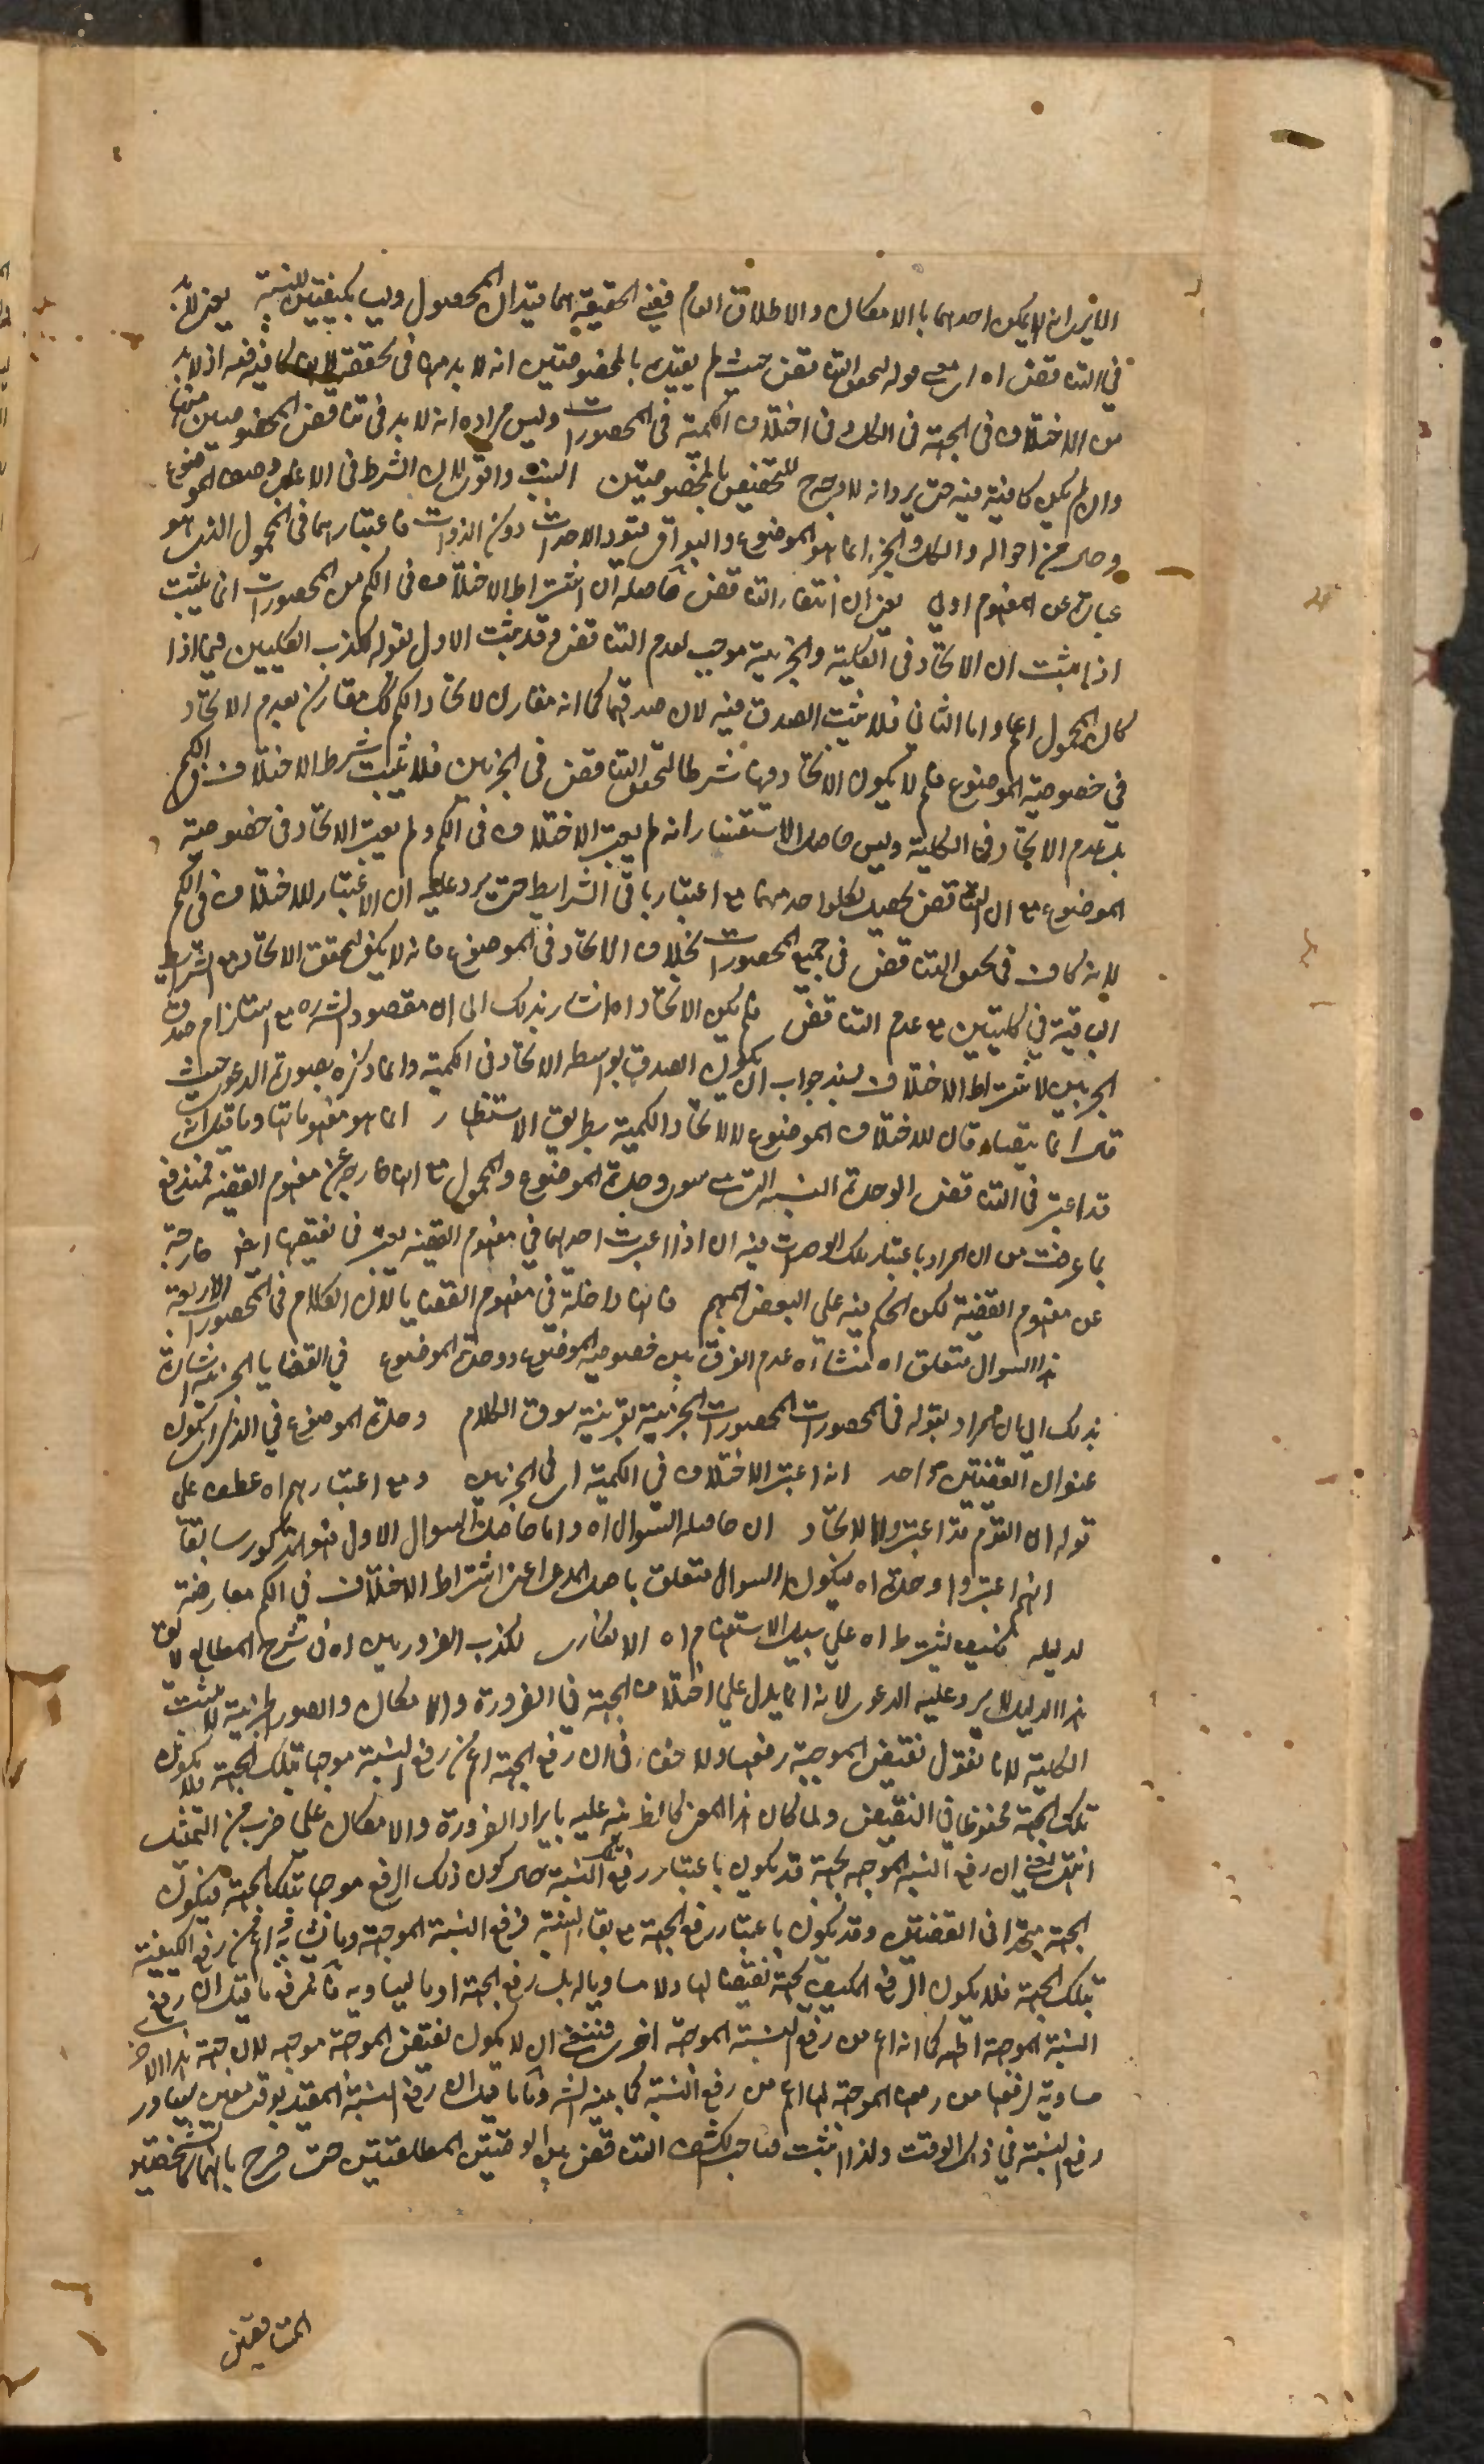 الا يرى انه لا يمكن احدهما بالامكان والاطلاق العام ففي الحقيقة هما قيدان المحمول وليسا بكيفيتين للنسبة يعني لا بد
في التناقض اه اي قوله لتحقق التناقض حيث لم يقيده بالمخصوصتين انه لا بد من في تحققه اذ لا بد
من الاختلاف في الجهة في الكل وفي اختلاف الكمية في المحصورات وليس مراده انه لا بد في تناقض المخصوصتين منها
وان لم يكن كافية فيه حتى يرد انه لا وجه للتخصيص بالمخصوصتين النسب والاولى لان الشرط في الاصل وصف الموضوع
وحال من احواله والكل والجزء انما هو الموضوع والبواقي قيود الاحداث دون الذوات فاعتبارهما في المحمول الذي هو
عبارة عن المفهوم اولى يعني ان انتفاء التناقض حاصله ان اشتراط الاختلاف في الكم من المحصورات انما يثبت
اذا ثبت ان الاتحاد في الكلية والجزئية موجب لعدم التناقض وقد ثبت الاول بقوله لكذب الكليتين فيما اذا
كان المحمول اعم واما الثاني فلا يثبت الصدق فيه لان صدقهما كما انه مقارن لاتحاد الكم كذلك مقارن بعدم الاتحاد
في خصوصية الموضوع فلم لا يكون الاتحاد فيها شرطا لتحقق التناقض في الجزئيتين فلا يثبت شرط الاختلاف في الكم
بل عدم الاتحاد في الكلية وليس حاصل الاستفسار انه لم يعتبر الاختلاف في الكم ولم يعتبر الاتحاد في خصوصية
الموضوع مع ان التناقض يحصل لكل واحد منهما مع اعتبار باقي الشرايط حتى يرد عليه ان الاعتبار للاختلاف في الكم
لانه كاف في تحقق التناقض في جميع المحصورات بخلاف الاتحاد في الموضوع فانه لا يكفي لتحقق الاتحاد مع الشرايط
الباقية في كليتين مع عدم التناقض فلم يكن الاتحاد اه اشار بذلك الى ان مقصود الشارح مع استلزام صدق
الجزئيتين لاشتراط الاختلاف بسند جواب ان يكون الصدق بواسطة الاتحاد في الكمية وانما ذكره بصورة الدعوى حيث
قال انما يقتضاه قال للاختلاف الموضوع لا لاتحاد الكمية بطريق الاستظهار انما هو مفهوماتها وما قيل انه
قد اعتبر في التناقض الوحدة النسبة التي هي سوى وحدة الموضوع والمحمول مع انها خارجة عن مفهوم القضية فمندفع
بما عرفت من ان المراد باعتبار تلك الوحدات فيه ان اذا اعتبرت احديهما في مفهوم القضية يعتبر في نقيضها ايضا خارجة
عن مفهوم القضية لكن الحكم فيه على البعض المبهم فانها داخلة في مفهوم القضايا لان الكلام في المحصورات الاربعة
هذا السوال متعلق اه منشأه عدم الفرق بين خصوصية الموضوع ووحدة الموضوع في القضايا الجزئية اشارة
بذلك الى ان المراد بقوله في المحصورات المحصورات الجزئية بقرينة سوق الكلام وحدة الموضوع في الذكر اي تكون
عنوان القضيتين واحد انه اعتبر الاختلاف في الكمية اي في الجزئيتين ومع اعتبارهم اه عطف على
قوله ان القوم قد اعتبروا الاتحاد ان حاصله السوال اه واما حاصل السوال الاول فهو المذكور سابقا
انهم اعتبروا وحدة اه فيكون السوال متعلق باصل المدعى اعني اشتراط الاختلاف في الكم معارضة
لدليله فكيف يشترط اه على سبيل الاستفهام اه الانكاري لكذب الضروريتين اه في شرح المطالع لا يقال
هذا الدليل لا يرد عليه الدعوى لانه انما يدل على اختلاف الجهة في الضرورة والامكان والصور الجزئية لا تثبت
الكلية لانا نقول نقيض الموجبة رفعها ولا خفاء في ان رفع الجهة اعم من رفع النسبة موجها بتلك الجهة فلا يكون
تلك الجهة محفوظا في النقيض ولما كان هذا المعنى كالظاهر نبه عليه بايراد الضرورة والامكان على ضرب من التمثيل
انتهى يعني ان رفع النسبة الموجهة بجهة قد يكون باعتبار رفع تلك النسبة حال كون ذلك الرفع موجها بتلك الجهة فيكون
الجهة متحدا في القضيتين وقد يكون باعتبار رفع الجهة مع بقاء النسبة فرفع النسبة الموجهة وما يشابه اعم من رفع الكيفية
بتلك الجهة فلا يكون الرفع المكيف بجهة نقيضا لها ولا مساويا له بل رفع الجهة او ما يساويه فاندفع ما قيل ان رفع
النسبة الموجهة اطم كما انه اعم من رفع النسبة الموجهة اخرى فينبغي ان لا يكون نقيض الموجهة موجهة لان جهة هذا الاخر
مساوية لرفعها من رفعه الموجهة لها اعم من رفع النسبة كما بينه الشارح وما قيل ان رفع النسبة المقيد بوقت معين يساوي
رفع النسبة في ذلك الوقت ولذا اثبت صاحب الكشف التناقض بين الوقتيتين المطلقتين حيث صرح بانهما كالشخصيتين
المتناقضين